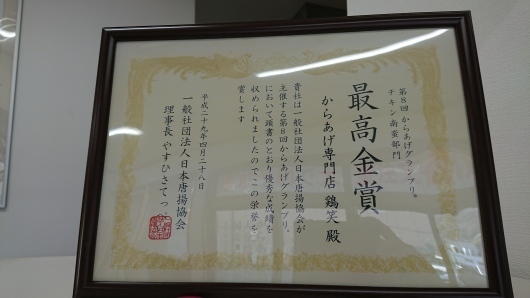 第8回 からあげグランプリ®
チキン南蛮部門
最高金賞
からあげ専門店 鶏笑 殿
貴社は一般社団法人日本唐揚協会が
主催する第8回からあげグランプリ®
において頭書のとおり優秀な成績を
収められましたのでこの栄誉を
賞します
平成二十九年四月二十八日
一般社団法人日本唐揚協会
理事長 やすひさてっぺい